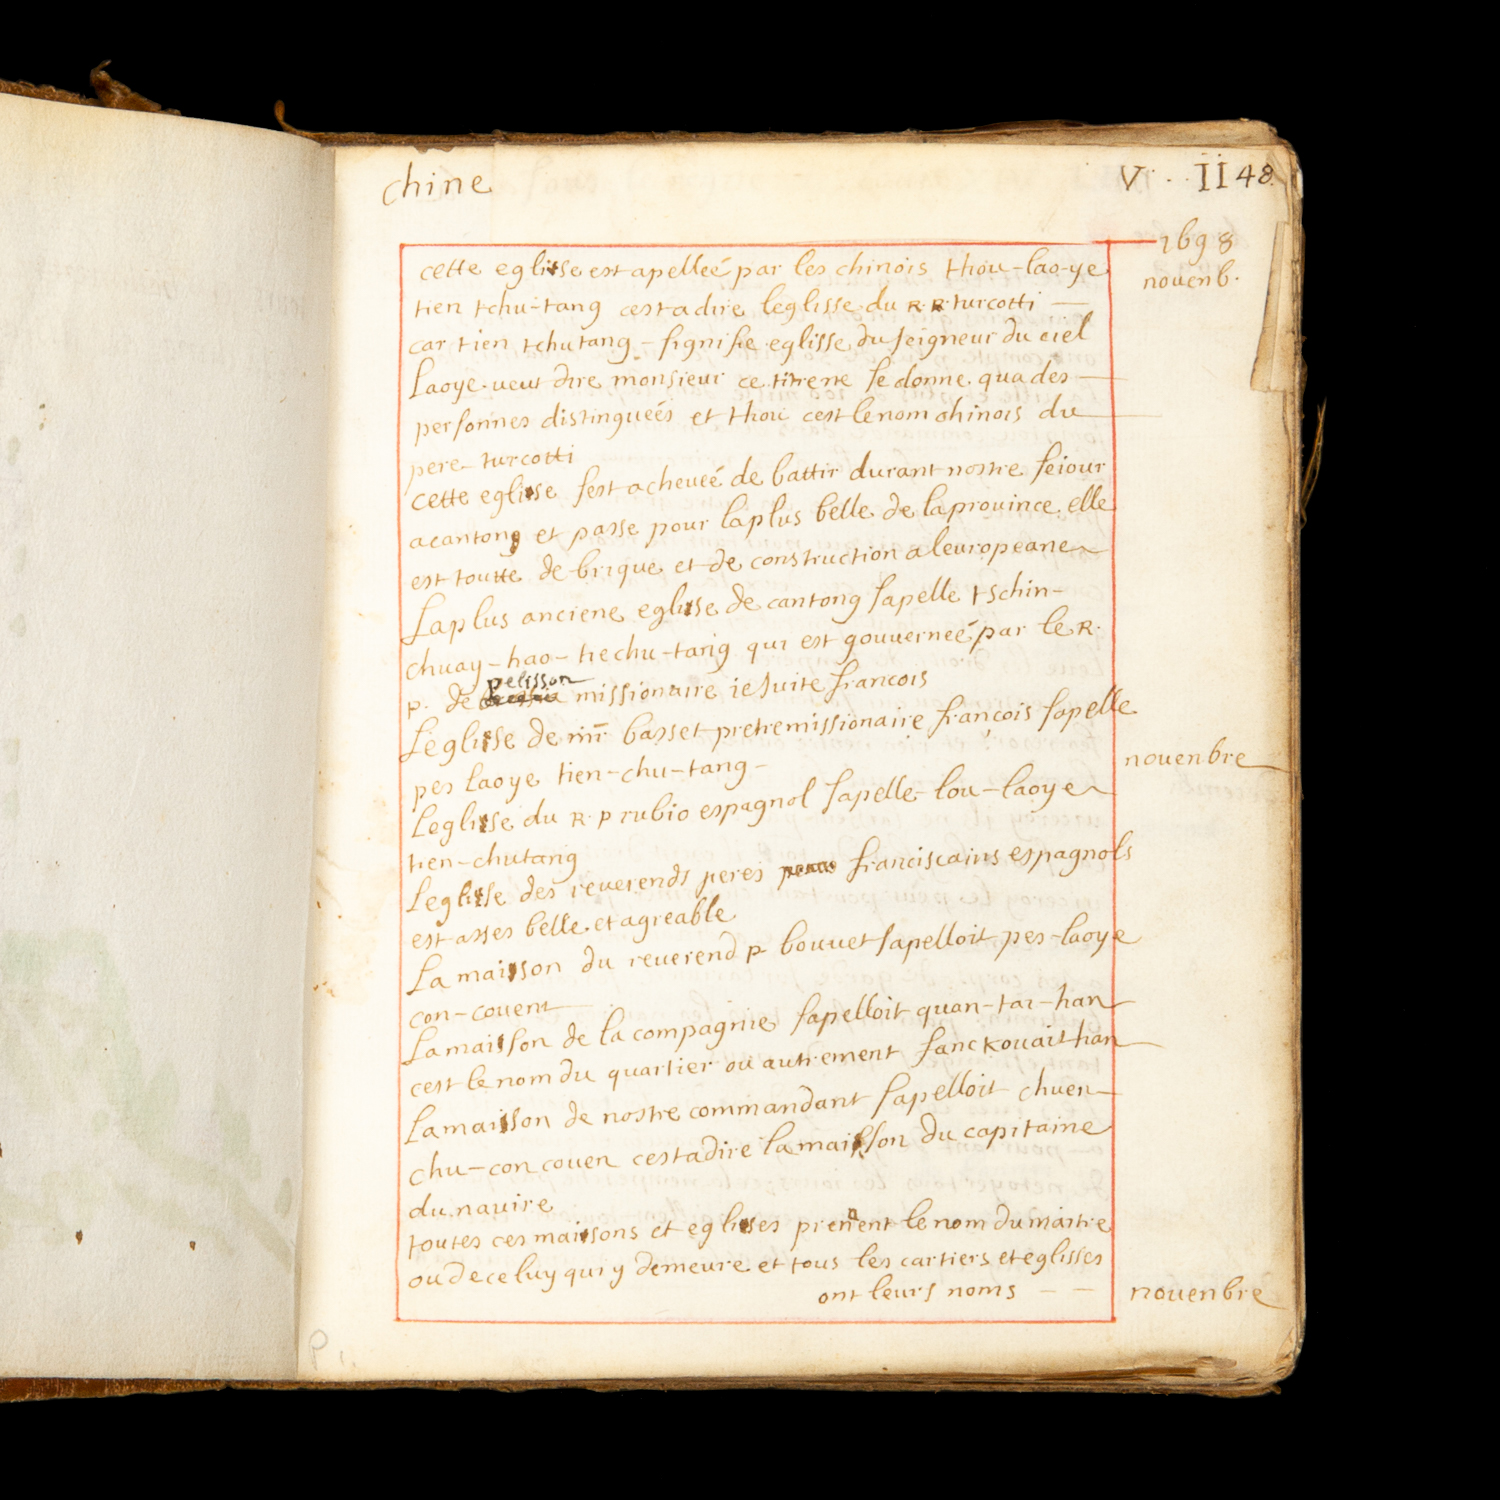 chine
V · · · II 48
1698
novenb.
cette eglisse est apelleé par les chinois thou-lao-ye
tien tchu-tang cest a dire leglisse du R R turcotti —
car tien tchutang - signifie eglisse du seigneur du ciel
Laoye veut dire monsieur ce titre ne se donne qua des —
personnes distingueés et thou cest le nom chinois du
pere turcotti
cette eglisse sest acheveé de battir durant nostre seiour
a cantong et passe pour la plus belle de la province elle
est toutte de brique et de construction a leuropeane
La plus anciene eglisse de cantong sapelle tschin-
chuay-hao-tiechu-tang qui est gouverneé par le R.
pelisson
p. de missionaire iesuite francois
Leglisse de mr basset pretre missionaire françois sapelle
novenbre
pes laoye tien-chu-tang-
Leglisse du R. P rubio espagnol sapelle lou-laoye
tien-chutang
Leglisse des reverends peres franciscains espagnols
est asses belle et agreable
La maisson du reverend p bouvet sapelloit pes-laoye
con-couent
La maisson de la compagnie sapelloit quan-tai-han
cest le nom du quartier ou autrement fanckouaithan
La maisson de nostre commandant sapelloit chuen-
chu-con couen cest a dire la maisson du capitaine
du navire
toutes ces maissons et eglisses prenent le nom du maitre
ou de celuy qui y demeure et tous les cartiers et eglisses
ont leurs noms — —
novenbre